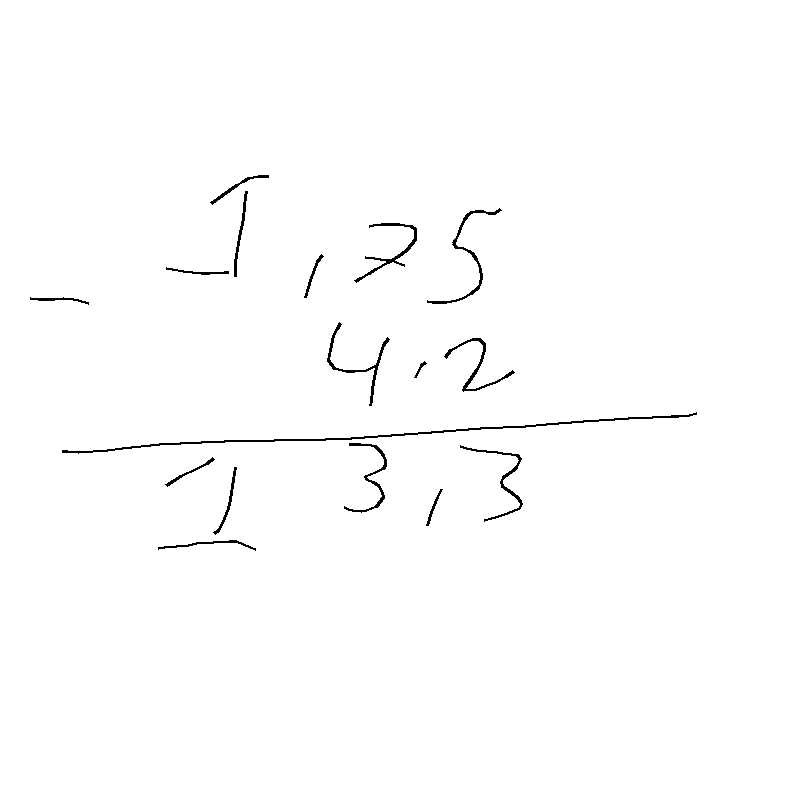 1,75
-
4.2
13,3